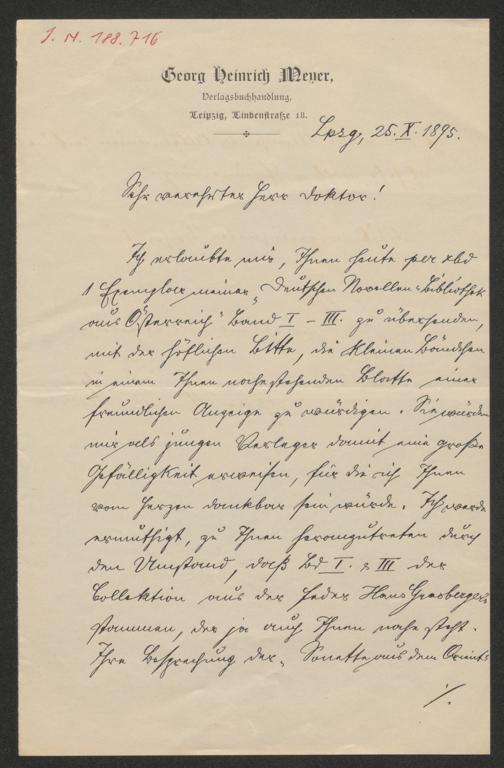 J. N. 188.716
Georg Heinrich Meyer,
Verlagsbuchhandlung,
Leipzig, Lindenstraße 18.
Lpzg, 25. X. 1895.
Sehr verehrter Herr Doktor!
Ich erlaubte mir, Ihnen heute per xbd
1 Exemplar meiner „Deutschen Novellen-Bibliothek
aus Österreich" Band I – III. zu übersenden,
mit der höflichen Bitte, die kleinen Bändchen
in einem Ihnen nahestehenden Blatte einer
freundlichen Anzeige zu würdigen. Sie würden
mir als jungen Verleger damit eine große
Gefälligkeit erweisen, für die ich Ihnen
vom Herzen dankbar sein würde. Ich werde
ermuthigt, zu Ihnen heranzutreten durch
den Umstand, daß Bd I. & III der
Collektion aus der Feder Hans Grasbergers
stammen, der ja auch Ihnen nahe steht.
Ihre Besprechung der „Sonette aus dem Orient"
./.